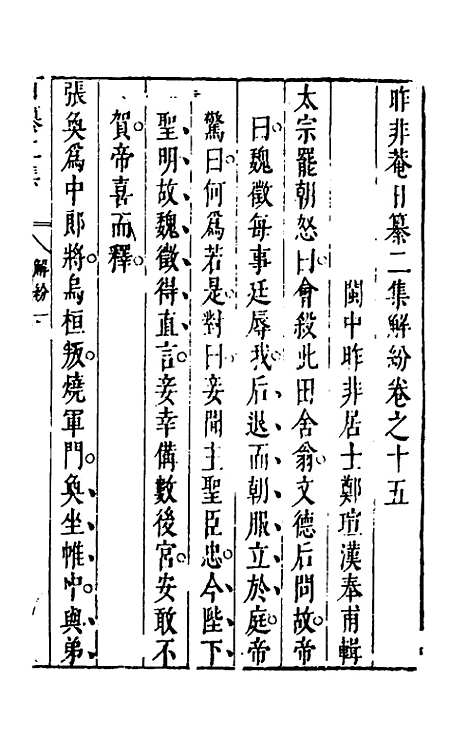 昨非菴日纂二集解紛卷之十五
閩中昨非居士鄭瑄漢奉甫輯
太宗罷朝怒曰會殺此田舍翁文德后問故帝
曰魏徵每事廷辱我后退而朝服立於庭帝
驚曰何爲若是對曰妾聞主聖臣忠今陛下
聖明故魏徵得直言妾幸備數後宮安敢不
賀帝喜而釋
張奐爲中郎將烏桓叛燒軍門奐坐帷中與弟
解紛